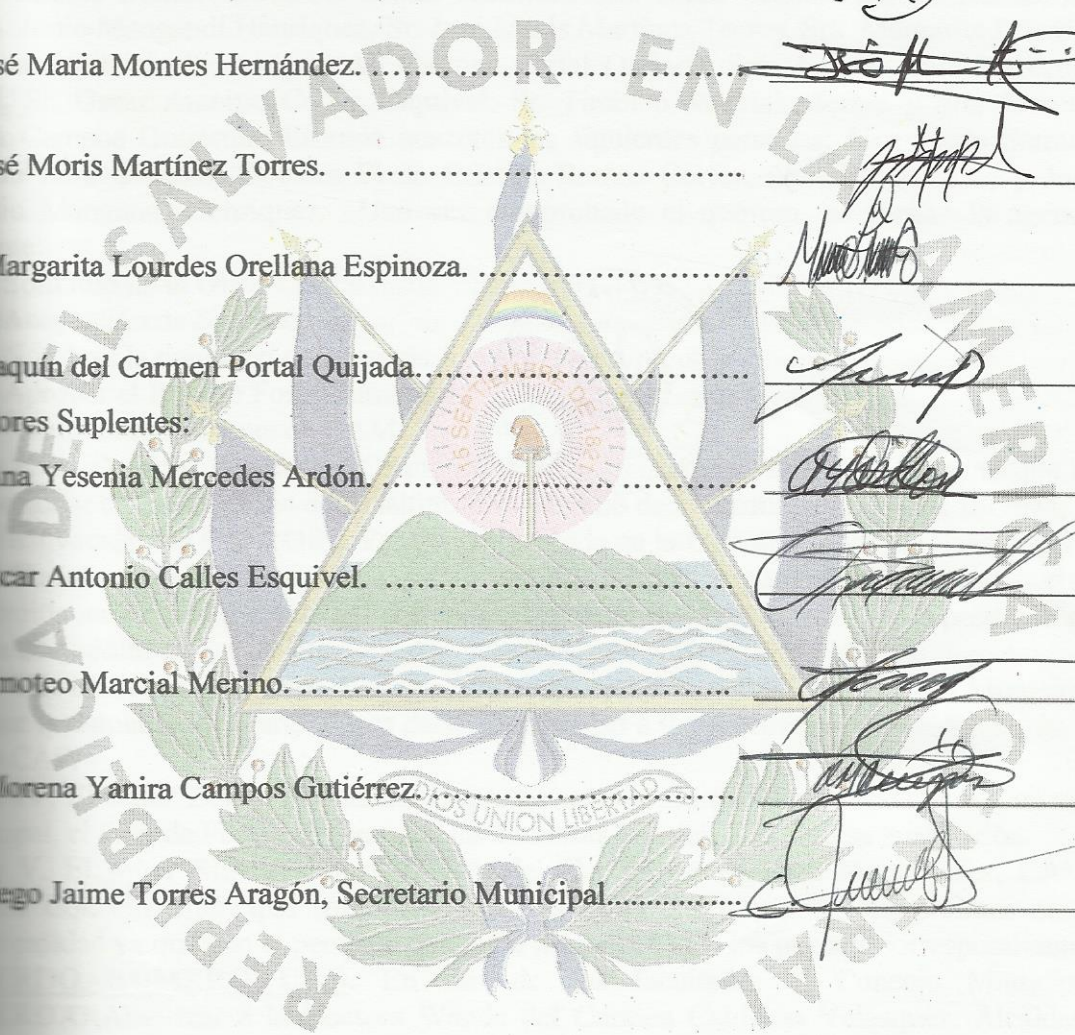 sé Maria Montes Hernández. ................................................
sé Moris Martínez Torres. ................................................
argarita Lourdes Orellana Espinoza. ................................
aquín del Carmen Portal Quijada.........................................
ores Suplentes:
na Yesenia Mercedes Ardón. ................................................
car Antonio Calles Esquivel. .............................................
moteo Marcial Merino. .......................................................
lorena Yanira Campos Gutiérrez. ........................................
ego Jaime Torres Aragón, Secretario Municipal................
REPUBLICA DE EL SALVADOR EN LA AMERICA CENTRAL
15 SEPTIEMBRE DE 1821
DIOS UNION LIBERTAD